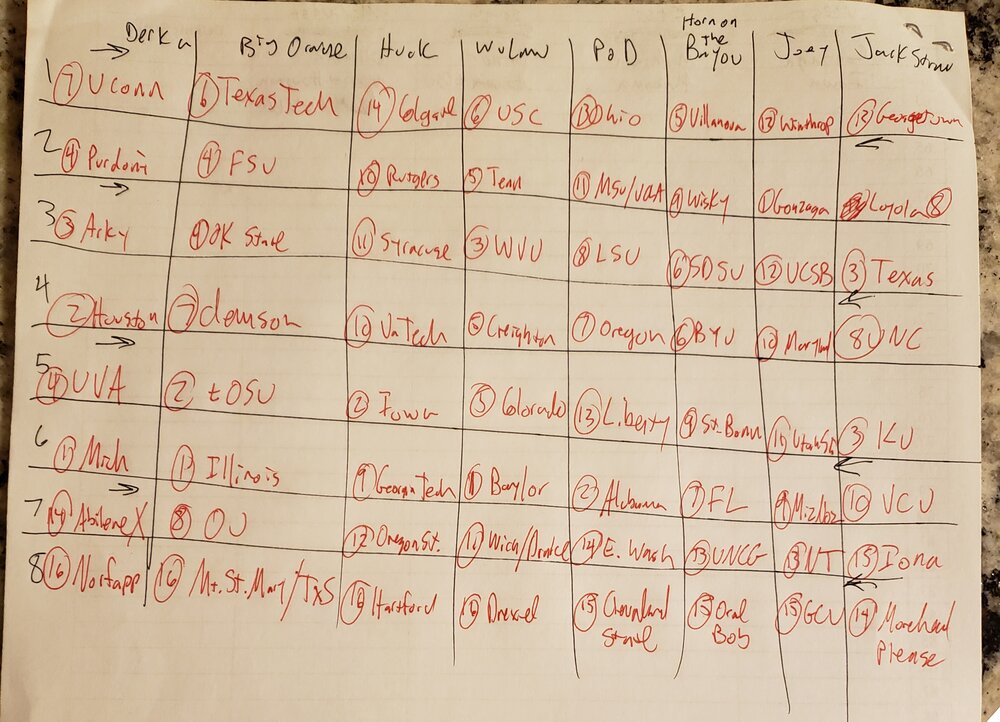 Derk u Big Orange Huck Wulaw PoD Horn on The BaYOU Joey Jack Straw
1 7 UConn 6 Texas Tech 14 Colgate 6 USC 13 Ohio 5 Villanova 12 Winthrop 13 Georgetown
2 4 Purdont 4 FSU 10 Rutgers 5 Tenn 11 MSU/UCLA 9 Wisky 1 Gonzaga Loyola 8
3 3 Arky 4 OK State 11 Syracuse 3 WVU 8 LSU 6 SDSU 12 UCSB 3 Texas
4 2 Houston 7 Clemson 10 VaTech 5 Creighton 7 Oregon 6 BYU 10 Maryland 8 UNC
5 4 UVA 2 tOSU 2 Iowa 5 Colorado 13 Liberty 9 St. Bonn 11 Utah St 3 KU
6 1 Mich 1 Illinois 9 Georgia Tech 1 Baylor 2 Alabama 7 FL 9 Mizzou 10 VCU
7 14 Abilene X 8 OU 12 Oregon St. 11 Wich/Drake 14 E. Wash 13 UNCG 13 NT 15 Iona
8 16 Norfapp 16 Mt. St. Mary/TxS 16 Hartford 16 Drexel 15 Cleveland State 15 Oral Bob 15 GCU 14 Morehead Please